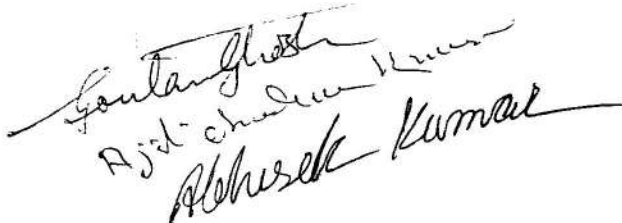 Goutam Ghosh
Ajit Kumar
Abhisek Kumar